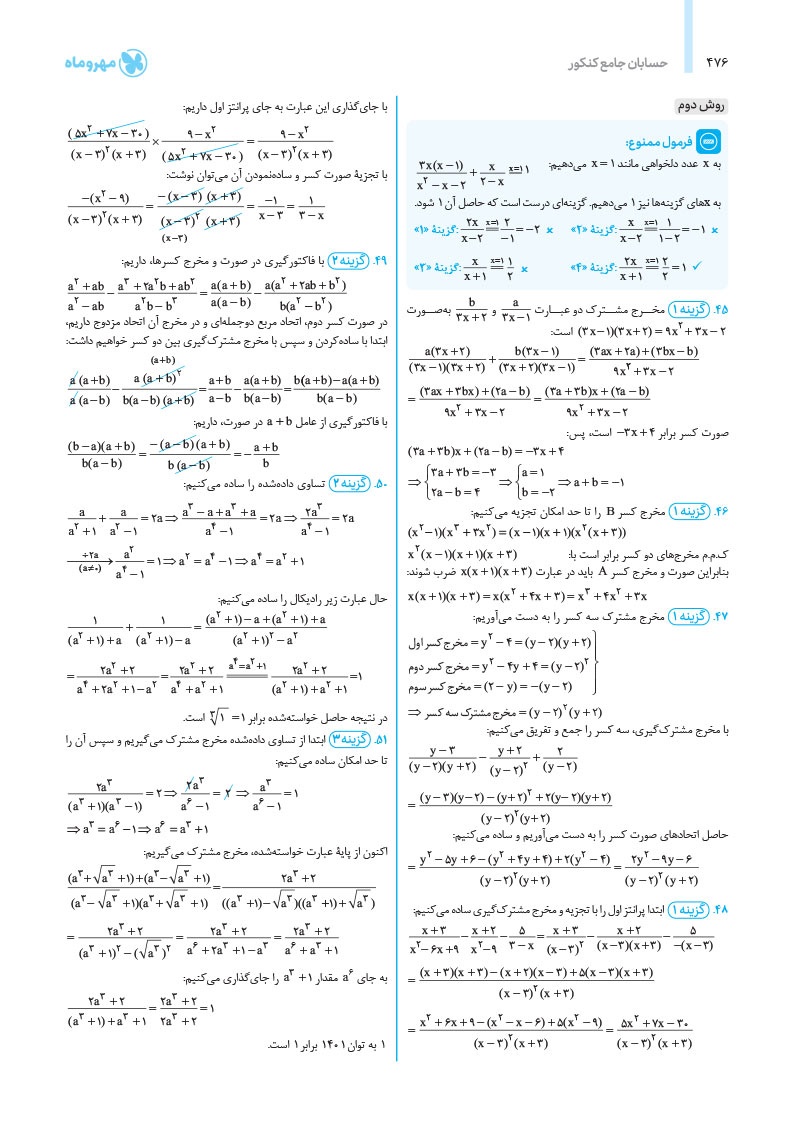 ۴۷۶
حسابان جامع کنکور
مهروماه
روش دوم
فرمول ممنوع:
به x عدد دلخواهی مانند x = ۱ می‌دهیم: (۳x(x−۱))/(x²−x−۲) + x/(۲−x) =(x=۱) ۱
به xهای گزینه‌ها نیز ۱ می‌دهیم. گزینه‌ای درست است که حاصل آن ۱ شود.
گزینهٔ «۱»: ۲x/(x−۲) =(x=۱) ۲/−۱ = −۲ × گزینهٔ «۲»: x/(x−۲) =(x=۱) ۱/(۱−۲) = −۱ ×
گزینهٔ «۳»: x/(x+۱) =(x=۱) ۱/۲ × گزینهٔ «۴»: ۲x/(x+۱) =(x=۱) ۲/۲ = ۱ ✓
۴۵. گزینه ۱ مخرج مشترک دو عبارت a/(۳x−۱) و b/(۳x+۲) به‌صورت
(۳x−۱)(۳x+۲) = ۹x²+۳x−۲ است:
a(۳x+۲)/((۳x−۱)(۳x+۲)) + b(۳x−۱)/((۳x+۲)(۳x−۱)) = ((۳ax+۲a)+(۳bx−b))/(۹x²+۳x−۲)
= ((۳ax+۳bx)+(۲a−b))/(۹x²+۳x−۲) = ((۳a+۳b)x+(۲a−b))/(۹x²+۳x−۲)
صورت کسر برابر −۳x+۴ است، پس:
(۳a+۳b)x+(۲a−b) = −۳x+۴
⇒ {۳a+۳b=−۳ , ۲a−b=۴ ⇒ {a=۱ , b=−۲ ⇒ a+b=−۱
۴۶. گزینه ۱ مخرج کسر B را تا حد امکان تجزیه می‌کنیم:
(x²−۱)(x³+۳x²) = (x−۱)(x+۱)(x²(x+۳))
ک.م.م مخرج‌های دو کسر برابر است با: x²(x−۱)(x+۱)(x+۳)
بنابراین صورت و مخرج کسر A باید در عبارت x(x+۱)(x+۳) ضرب شوند:
x(x+۱)(x+۳) = x(x²+۴x+۳) = x³+۴x²+۳x
۴۷. گزینه ۱ مخرج مشترک سه کسر را به دست می‌آوریم:
مخرج کسر اول = y²−۴ = (y−۲)(y+۲)
مخرج کسر دوم = y²−۴y+۴ = (y−۲)²
مخرج کسر سوم = (۲−y) = −(y−۲)
⇒ مخرج مشترک سه کسر = (y−۲)²(y+۲)
با مخرج مشترک‌گیری، سه کسر را جمع و تفریق می‌کنیم:
(y−۳)/((y−۲)(y+۲)) − (y+۲)/(y−۲)² + ۲/(y−۲)
= ((y−۳)(y−۲)−(y+۲)²+۲(y−۲)(y+۲))/((y−۲)²(y+۲))
حاصل اتحادهای صورت کسر را به دست می‌آوریم و ساده می‌کنیم:
= (y²−۵y+۶−(y²+۴y+۴)+۲(y²−۴))/((y−۲)²(y+۲)) = (۲y²−۹y−۶)/((y−۲)²(y+۲))
۴۸. گزینه ۱ ابتدا پرانتز اول را با تجزیه و مخرج مشترک‌گیری ساده می‌کنیم:
(x+۳)/(x²−۶x+۹) − (x+۲)/(x²−۹) − ۵/(۳−x) = (x+۳)/(x−۳)² − (x+۲)/((x−۳)(x+۳)) − ۵/(−(x−۳))
= ((x+۳)(x+۳)−(x+۲)(x−۳)+۵(x−۳)(x+۳))/((x−۳)²(x+۳))
= (x²+۶x+۹−(x²−x−۶)+۵(x²−۹))/((x−۳)²(x+۳)) = (۵x²+۷x−۳۰)/((x−۳)²(x+۳))
با جای‌گذاری این عبارت به جای پرانتز اول داریم:
(۵x²+۷x−۳۰)/((x−۳)²(x+۳)) × (۹−x²)/(۵x²+۷x−۳۰) = (۹−x²)/((x−۳)²(x+۳))
با تجزیهٔ صورت کسر و ساده‌نمودن آن می‌توان نوشت:
−(x²−۹)/((x−۳)²(x+۳)) = −(x−۳)(x+۳)/((x−۳)²(x+۳)) = −۱/(x−۳) = ۱/(۳−x)
(x−۳)
۴۹. گزینه ۲ با فاکتورگیری در صورت و مخرج کسرها، داریم:
(a²+ab)/(a²−ab) − (a³+۲a²b+ab²)/(a²b−b³) = a(a+b)/(a(a−b)) − a(a²+۲ab+b²)/(b(a²−b²))
در صورت کسر دوم، اتحاد مربع دوجمله‌ای و در مخرج آن اتحاد مزدوج داریم،
ابتدا با ساده‌کردن و سپس با مخرج مشترک‌گیری بین دو کسر خواهیم داشت:
(a+b)
a(a+b)/(a(a−b)) − a(a+b)²/(b(a−b)(a+b)) = (a+b)/(a−b) − a(a+b)/(b(a−b)) = (b(a+b)−a(a+b))/(b(a−b))
با فاکتورگیری از عامل a+b در صورت، داریم:
(b−a)(a+b)/(b(a−b)) = −(a−b)(a+b)/(b(a−b)) = −(a+b)/b
۵۰. گزینه ۲ تساوی داده‌شده را ساده می‌کنیم:
a/(a²+۱) + a/(a²−۱) = ۲a ⇒ (a³−a+a³+a)/(a⁴−۱) = ۲a ⇒ ۲a³/(a⁴−۱) = ۲a
÷۲a (a≠۰) → a²/(a⁴−۱) = ۱ ⇒ a² = a⁴−۱ ⇒ a⁴ = a²+۱
حال عبارت زیر رادیکال را ساده می‌کنیم:
۱/((a²+۱)+a) + ۱/((a²+۱)−a) = ((a²+۱)−a+(a²+۱)+a)/((a²+۱)²−a²)
= (۲a²+۲)/(a⁴+۲a²+۱−a²) = (۲a²+۲)/(a⁴+a²+۱) =(a⁴=a²+۱) (۲a²+۲)/((a²+۱)+a²+۱) = ۱
در نتیجه حاصل خواسته‌شده برابر ∛۱ = ۱ است.
۵۱. گزینه ۳ ابتدا از تساوی داده‌شده مخرج مشترک می‌گیریم و سپس آن را
تا حد امکان ساده می‌کنیم:
۲a³/((a³+۱)(a³−۱)) = ۲ ⇒ ۲a³/(a⁶−۱) = ۲ ⇒ a³/(a⁶−۱) = ۱
⇒ a³ = a⁶−۱ ⇒ a⁶ = a³+۱
اکنون از پایهٔ عبارت خواسته‌شده، مخرج مشترک می‌گیریم:
((a³+√a³+۱)+(a³−√a³+۱))/((a³−√a³+۱)(a³+√a³+۱)) = (۲a³+۲)/(((a³+۱)−√a³)((a³+۱)+√a³))
= (۲a³+۲)/((a³+۱)²−(√a³)²) = (۲a³+۲)/(a⁶+۲a³+۱−a³) = (۲a³+۲)/(a⁶+a³+۱)
به جای a⁶ مقدار a³+۱ را جای‌گذاری می‌کنیم:
(۲a³+۲)/((a³+۱)+a³+۱) = (۲a³+۲)/(۲a³+۲) = ۱
۱ به توان ۱۴۰۱ برابر ۱ است.